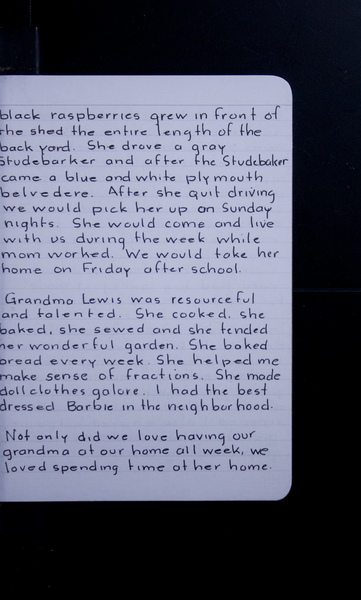 black raspberries grew in front of
the shed the entire length of the
back yard. She drove a gray
Studebarker and after the Studebaker
came a blue and white plymouth
belvedere. After she quit driving
we would pick her up on Sunday
nights. She would come and live
with us during the week while
mom worked. We would take her
home on Friday after school.
Grandma Lewis was resourceful
and talented. She cooked, she
baked, she sewed and she tended
her wonderful garden. She baked
bread every week. She helped me
make sense of fractions. She made
doll clothes galore. I had the best
dressed Barbie in the neighborhood.
Not only did we love having our
grandma at our home all week, we
loved spending time at her home.